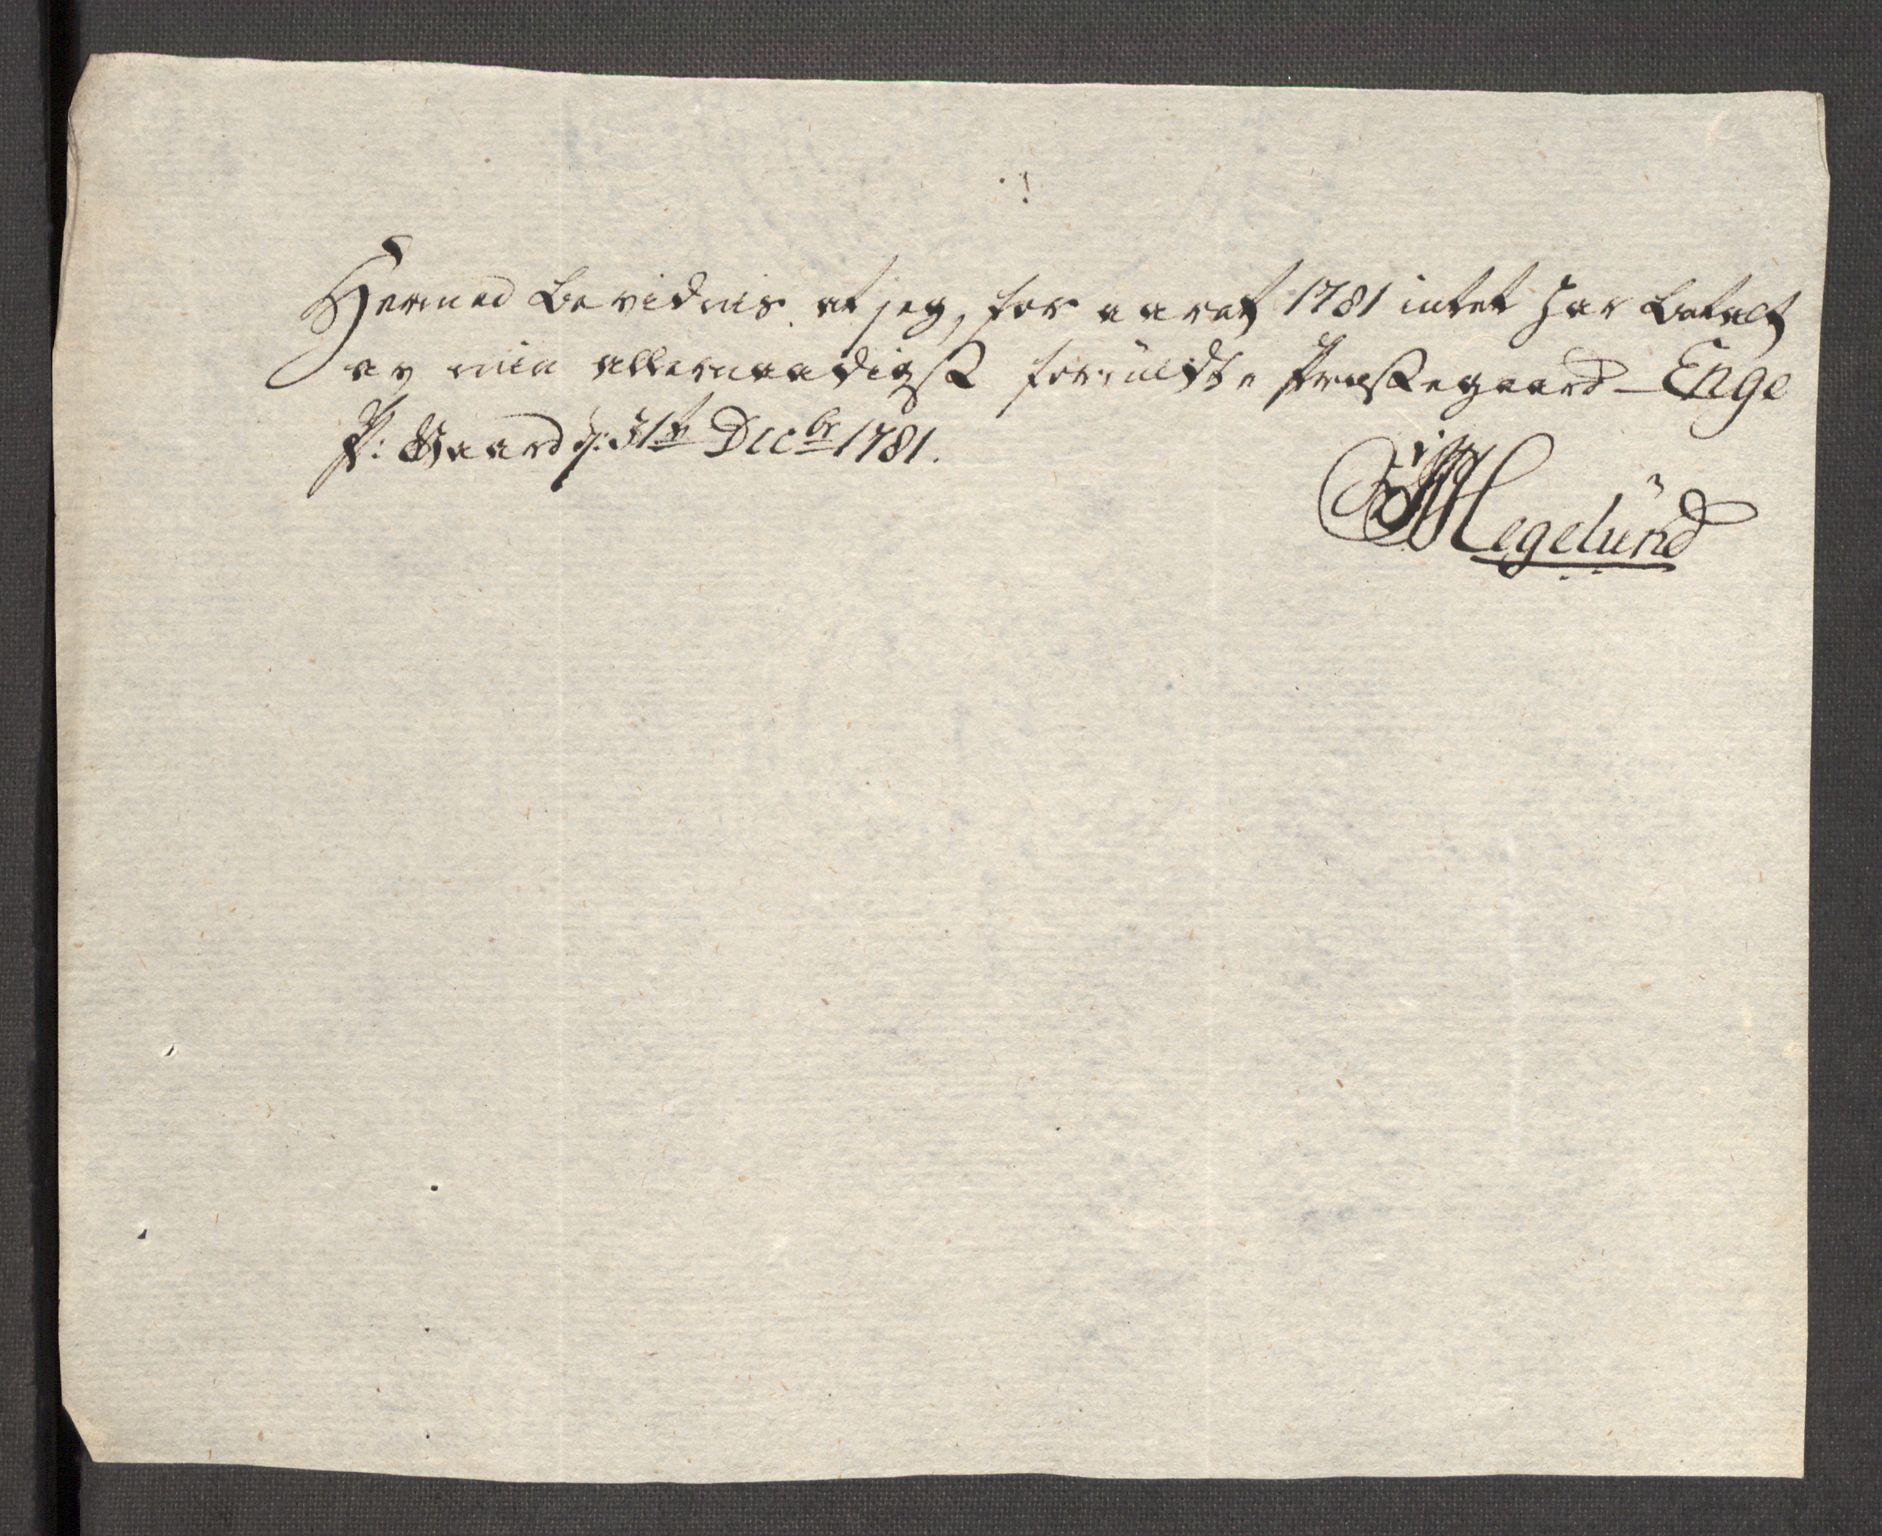 Hermed bevidnis at jeg, for aaret 1781 intet har betalt
av min allernaadigst forundte Præstegaard - Enge
P: Gaard d: 31te Decbr 1781.
Hegelünd